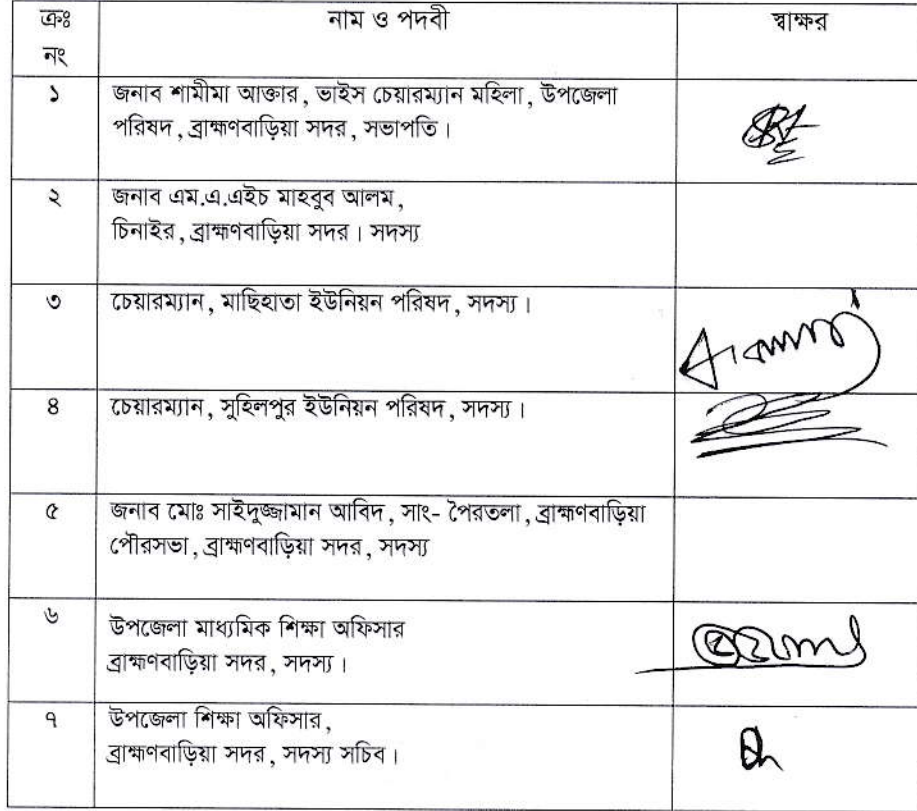 ক্রঃ নং নাম ও পদবী স্বাক্ষর
১ জনাব শামীমা আক্তার, ভাইস চেয়ারম্যান মহিলা, উপজেলা
পরিষদ, ব্রাহ্মণবাড়িয়া সদর, সভাপতি।
২ জনাব এম.এ.এইচ মাহবুব আলম,
চিনাইর, ব্রাহ্মণবাড়িয়া সদর। সদস্য
৩ চেয়ারম্যান, মাছিহাতা ইউনিয়ন পরিষদ, সদস্য।
৪ চেয়ারম্যান, সুহিলপুর ইউনিয়ন পরিষদ, সদস্য।
৫ জনাব মোঃ সাইদুজ্জামান আবিদ, সাং- পৈরতলা, ব্রাহ্মণবাড়িয়া
পৌরসভা, ব্রাহ্মণবাড়িয়া সদর, সদস্য
৬ উপজেলা মাধ্যমিক শিক্ষা অফিসার
ব্রাহ্মণবাড়িয়া সদর, সদস্য।
৭ উপজেলা শিক্ষা অফিসার,
ব্রাহ্মণবাড়িয়া সদর, সদস্য সচিব।